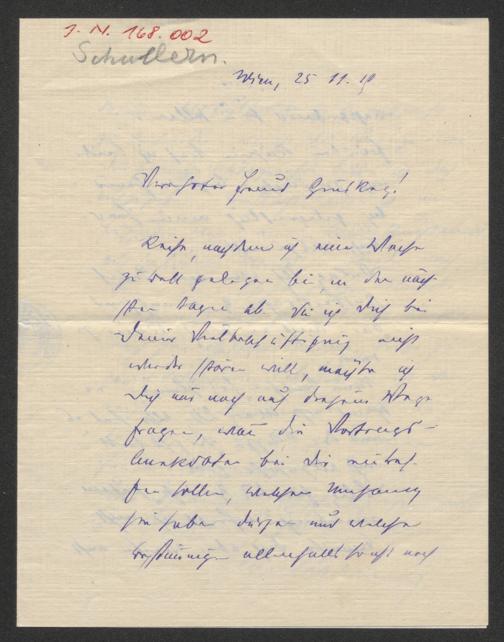 J. N. 168.002
Schullern.
Wien, 25 11. 19
Verehrter Freund Ginzkey!
Reise, nachdem ich eine Woche
zu Bett gelegen bin, in den näch-
sten Tagen ab. Da ich Dich bei
Deiner Vielbeschäftigung nicht
wieder stören will, möchte ich
Dich nur noch auf diesem Wege
fragen, wann die Vortrags-
bei Dir
sollen, welchen Umfang
sie haben dürfen und welche
allenfalls sonst noch